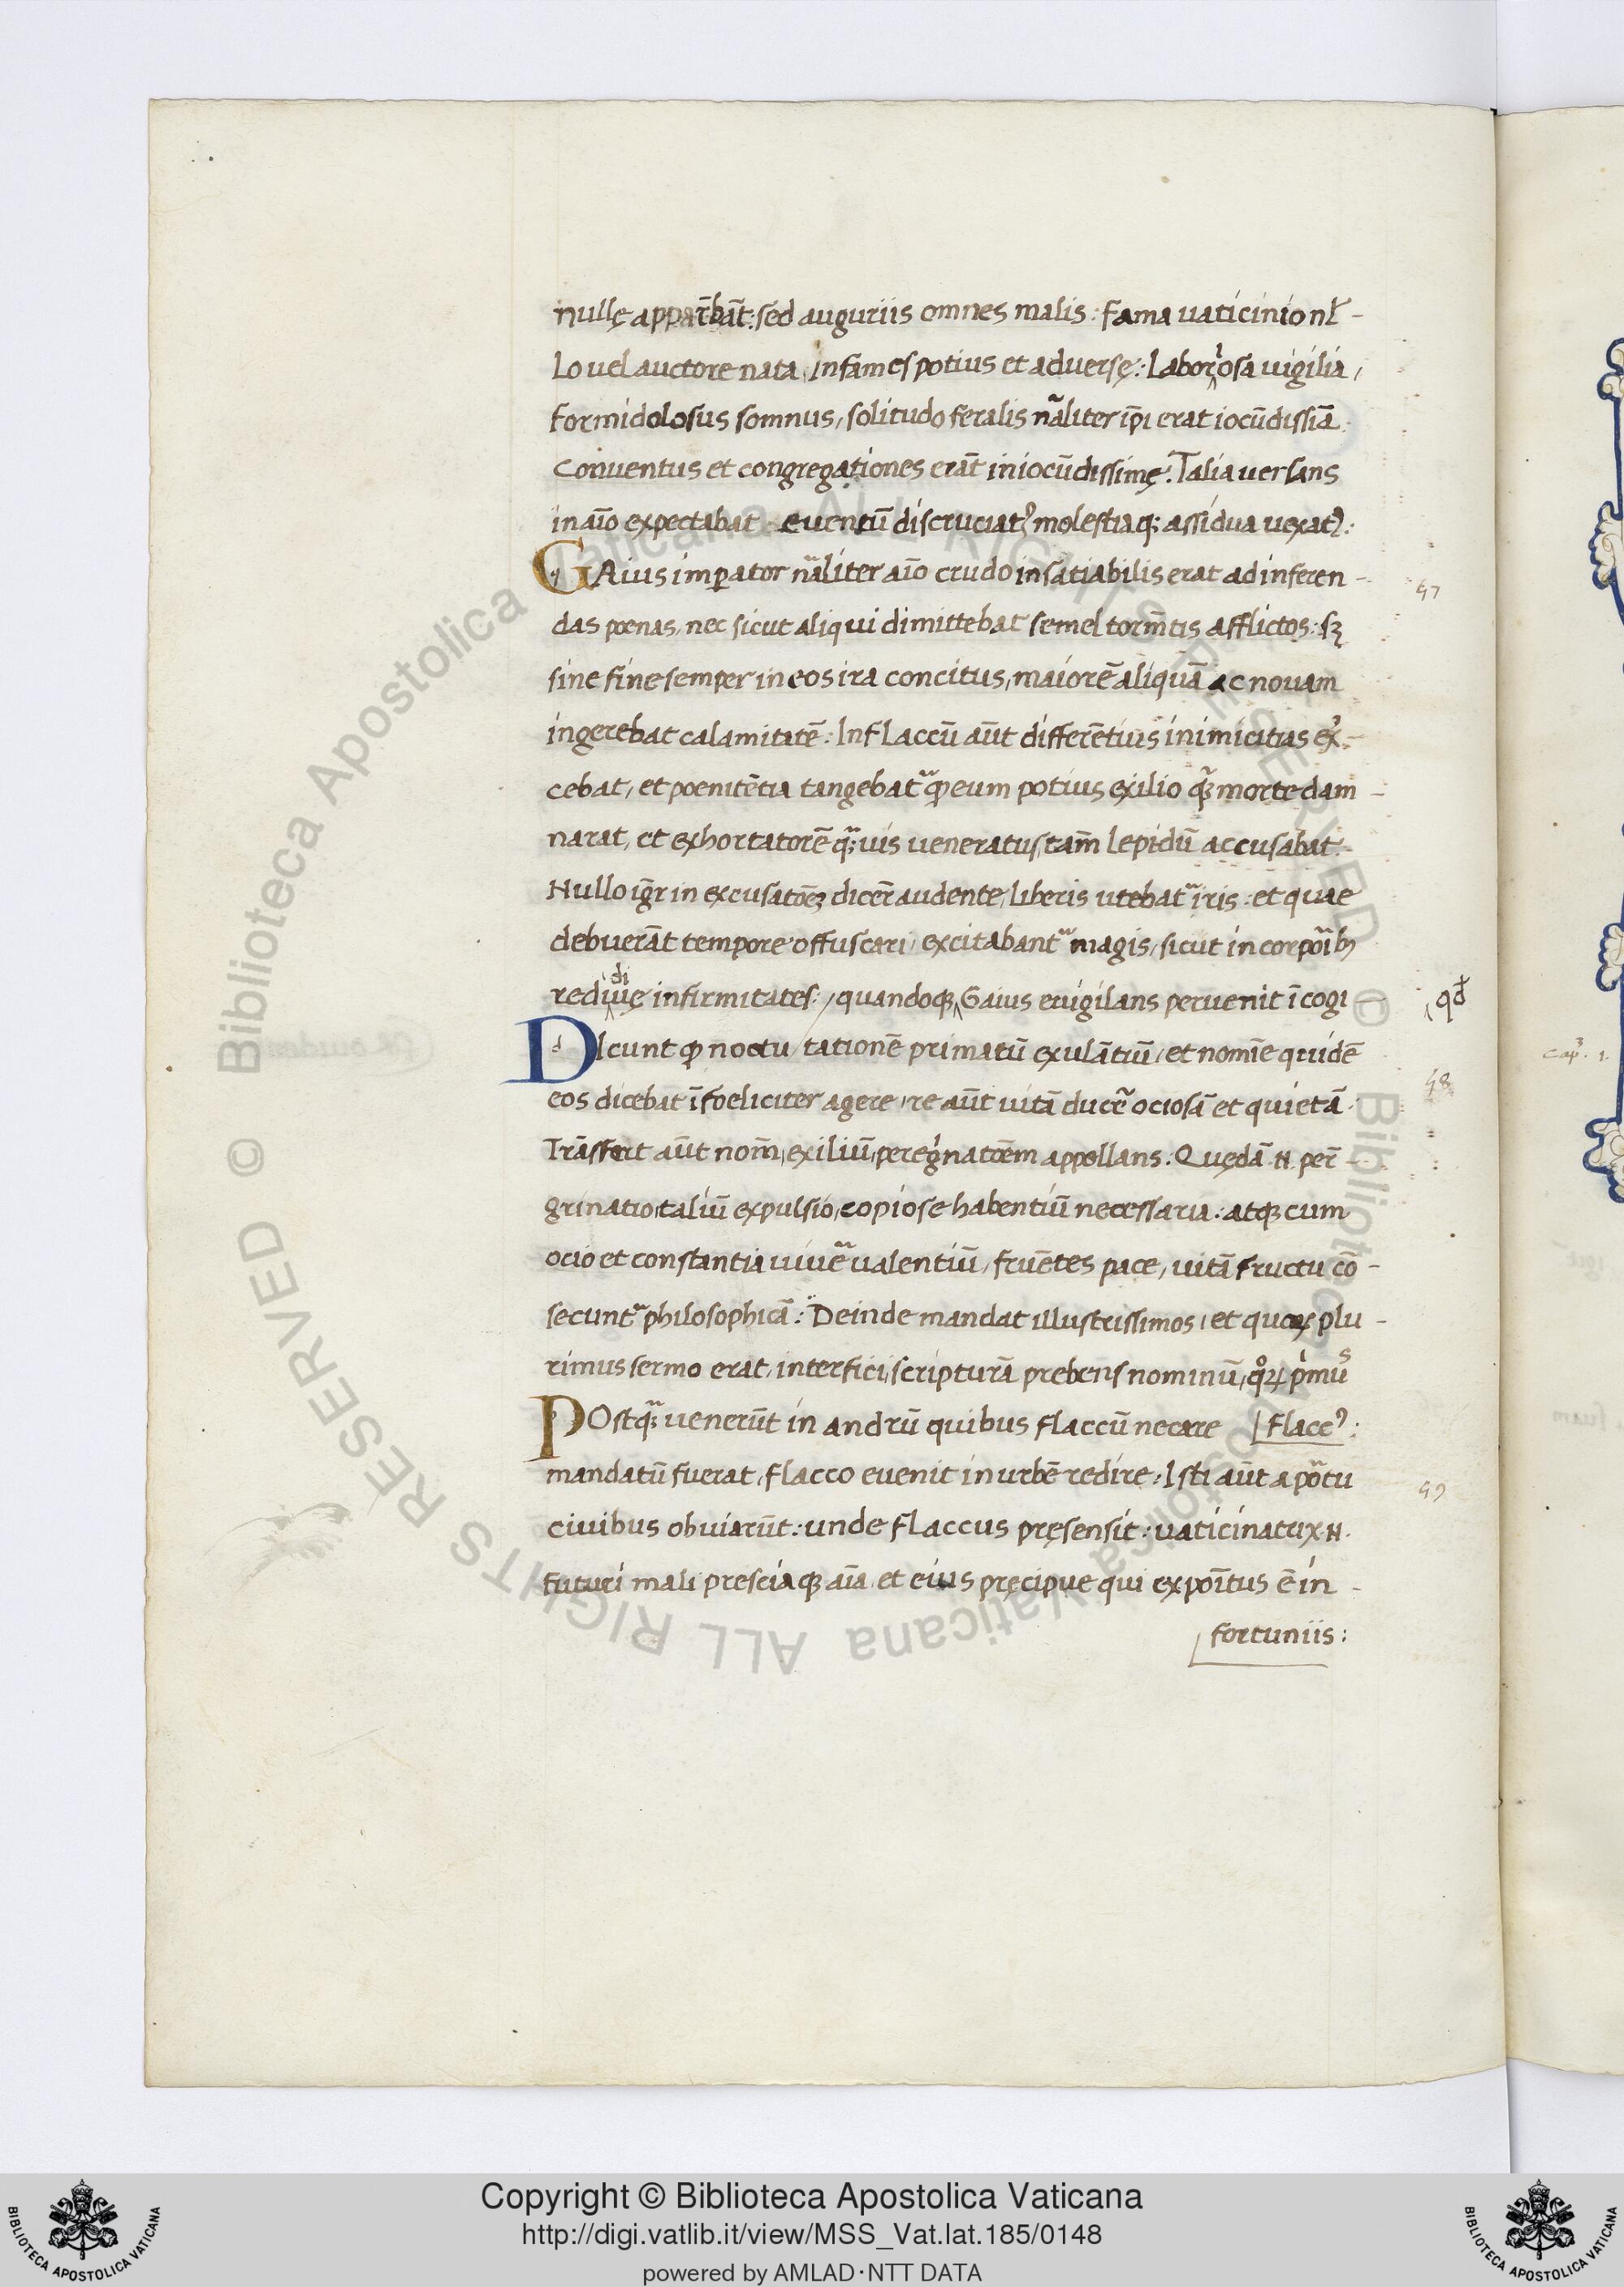 nullę appar̄bāt: sed auguriis omnes malis: fama uaticinio nł-
lo uel auctore nata, infames potius et aduersę: laboriosa uigilia,
formidolosus somnus, solitudo feralis nāliter ip̄i erat iocūdissīa
conuentus et congregationes erāt iniocūdissimę. Talia uersans
in aīo expectabat euentū discruciatꝰ molestiaq; assidua uexatꝰ:
GAius imꝑator nāliter aīo crudo insatiabilis erat ad inferen-
47
das poenas, nec sicut aliqui dimittebat semel torm̄tis afflictos: sꝫ
sine fine semper in eos ira concitus, maiorē aliquā ac nouam
ingerebat calamitatē: In flaccū aūt differētius inimicitias ex̾-
cebat, et poenitētia tangebat᷑ ꝙ eum potius exilio q̄ꝫ morte dam-
narat, et exhortatorē q̄ꝫuis ueneratus, tam̄ lepidū accusabat.
Nullo igr̄ in excusatōeꝫ dicer̄ audente, liberis utebat᷑ iris: et quae
debuerāt tempore offuscari, excitabant᷑ magis, sicut in corpoīb;
rediuiuę infirmitates: / quandoq; Gaius euigilans peruenit ī cogi
qđ
DIcunt ꝙ noctu / tationē primatū exulātiū, et nomīe quidē
48
eos dicebat īfoeliciter agere, re aūt uitā ducer̄ ociosā et quietā.
Trāsfert aūt nom̄, exiliū, peregrinatōem appellans. Quędā .n. per̄-
grinatio, taliū expulsio, copiose habentiū necessaria: atq; cum
ocio et constantia uiuer̄ ualentiū, fruētes pace, uitā fructu cō-
secunt᷑ philosophicā: Deinde mandat illustrissimos, et quoꝝ plu-
rimus sermo erat, interfici, scripturā prebens nominū, qͦꝝ pⁱmus
POstq̄ꝫ uenerūt in andrū quibus flaccū necare | flaccꝰ:
mandatū fuerat, flacco euenit in urbē redire: Isti aūt a portu
49
ciuibus obuiarūt: unde flaccus pręsensit: uaticinatrix .n.
futuri mali presciaq; aīa, et eius pręcipue qui expoītus ē in-
fortuniis:
cap. 1.
Copyright © Biblioteca Apostolica Vaticana
http://digi.vatlib.it/view/MSS_Vat.lat.185/0148
powered by AMLAD·NTT DATA
BIBLIOTECA APOSTOLICA VATICANA
BIBLIOTECA APOSTOLICA VATICANA
© Biblioteca Apostolica Vaticana ALL RIGHTS RESERVED © Biblioteca Apostolica Vaticana ALL RIGHTS RESERVED